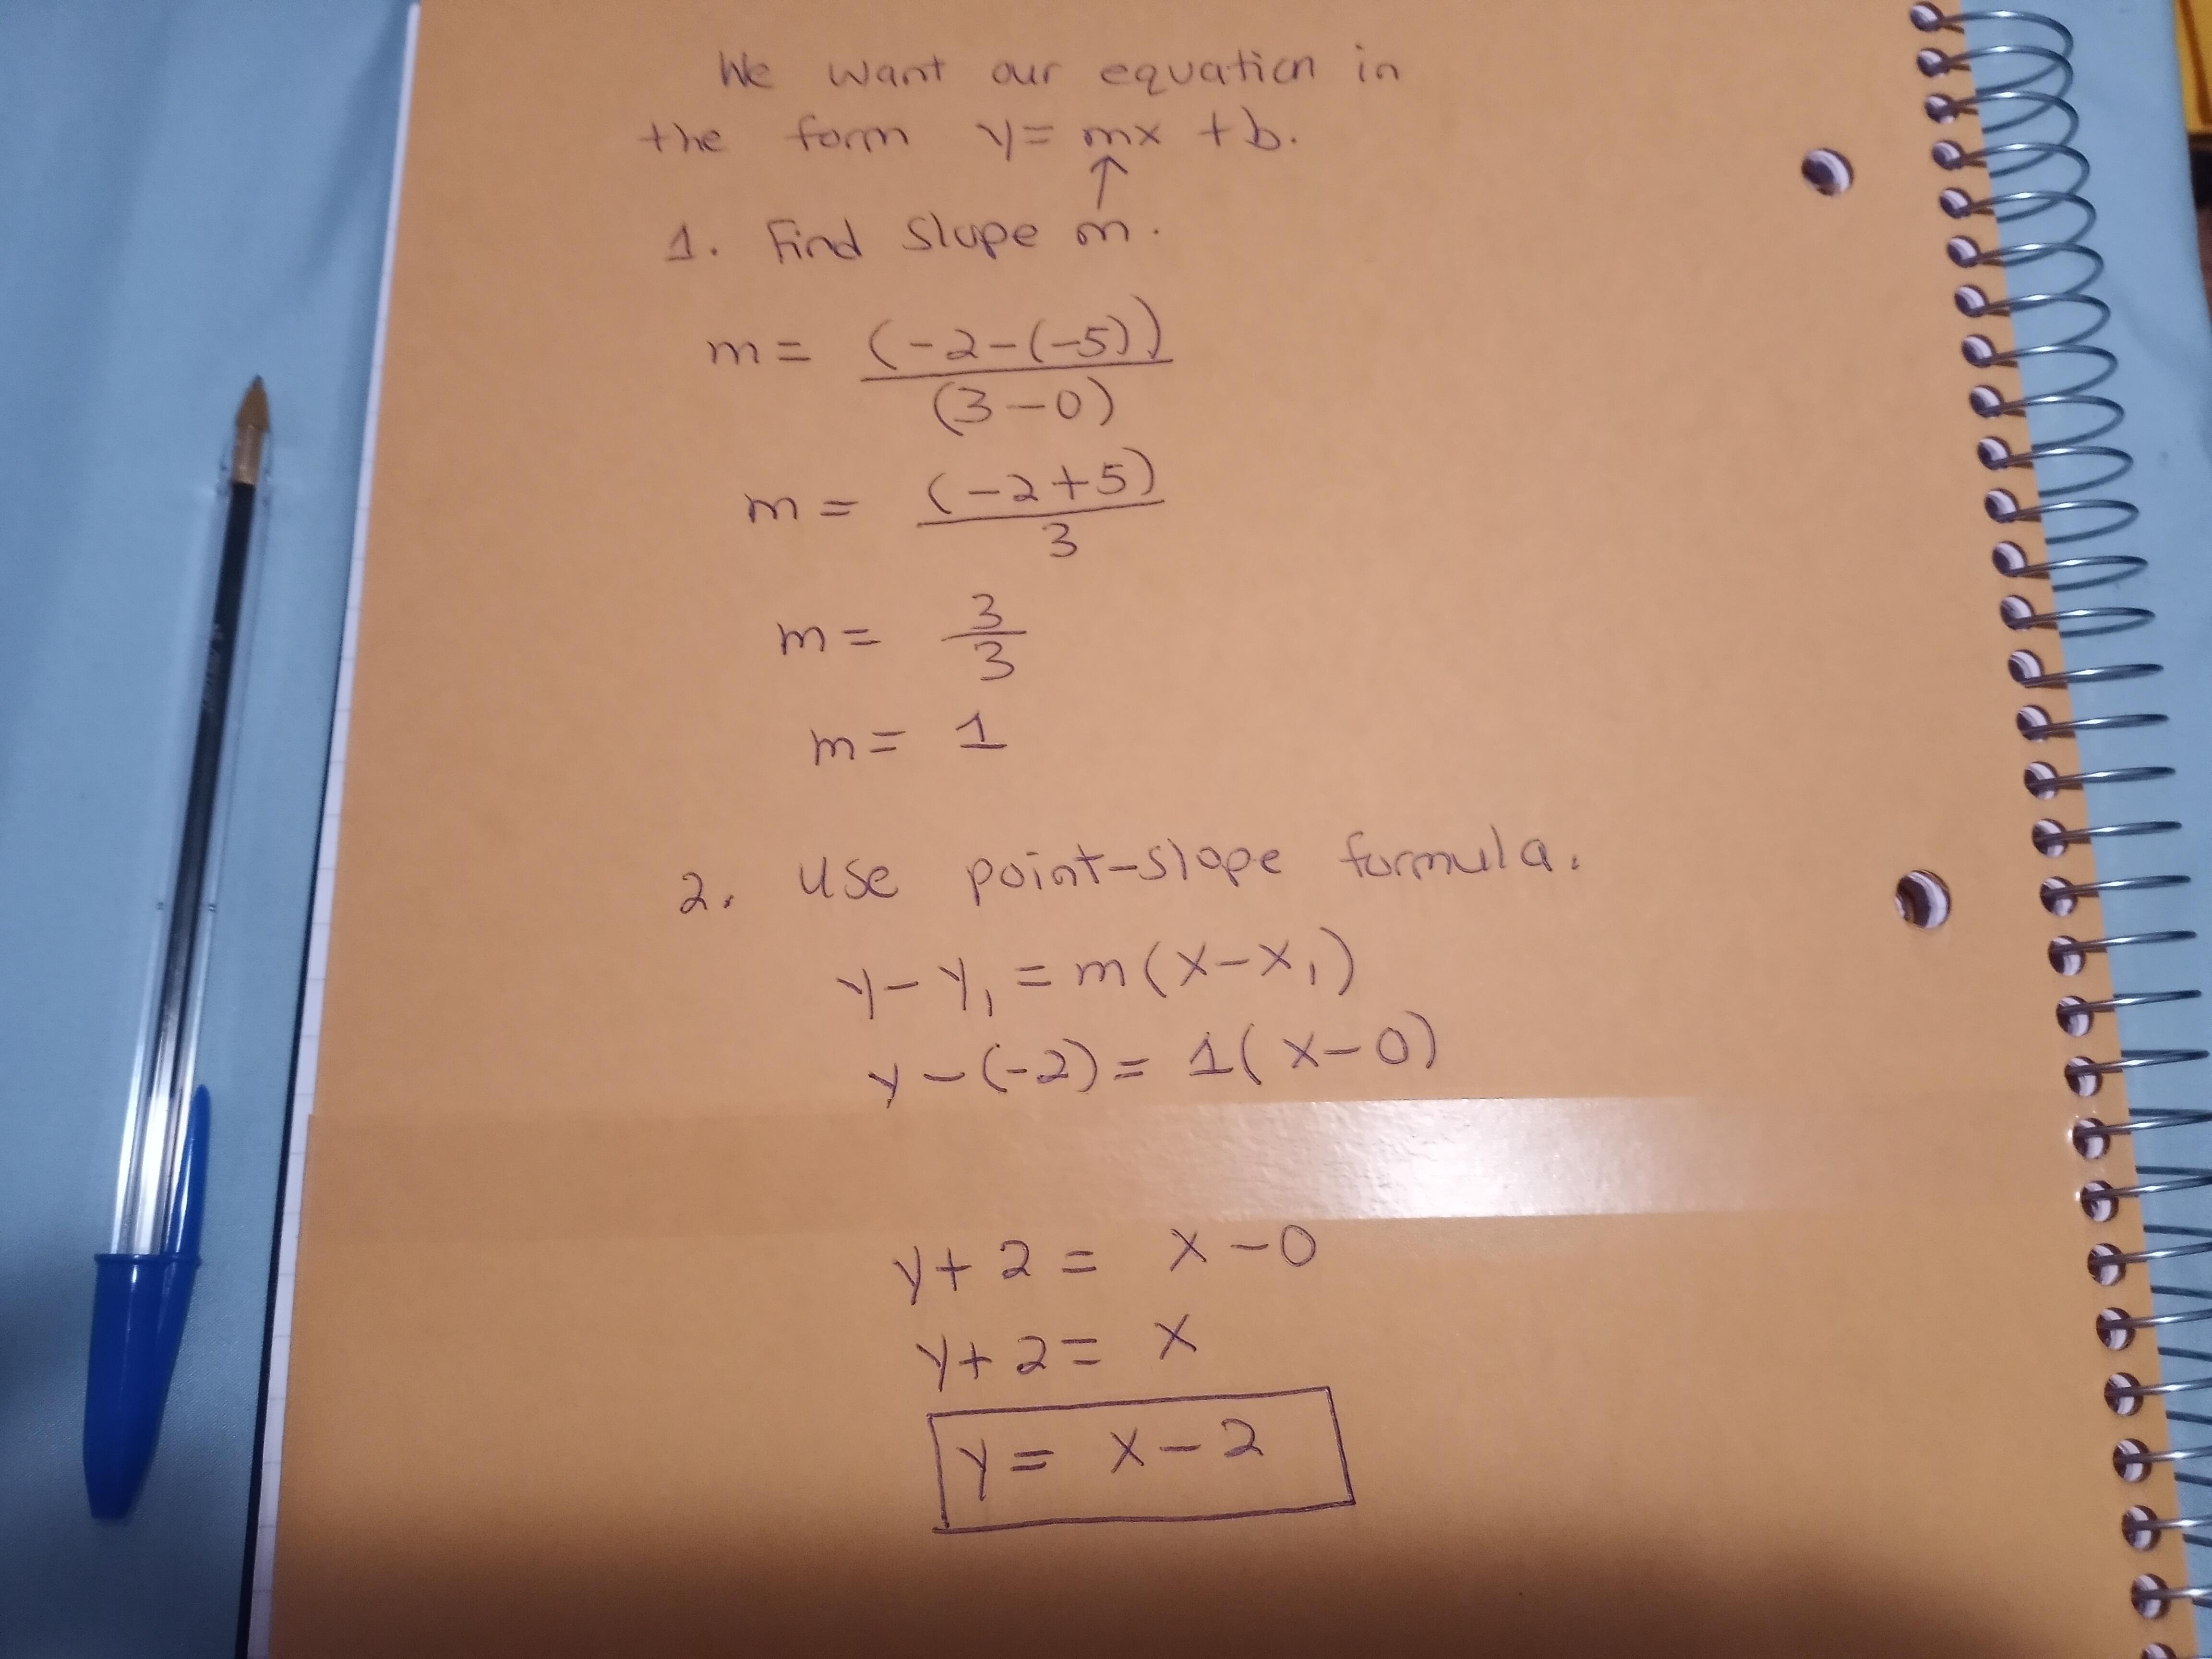 We want our equation in
the form y = mx + b.
↑
1. Find slope m.
m = (-2-(-5)) / (3-0)
m = (-2+5) / 3
m = 3/3
m = 1
2. Use point-slope formula.
y - y₁ = m(x - x₁)
y - (-2) = 1(x - 0)
y + 2 = x - 0
y + 2 = x
y = x - 2